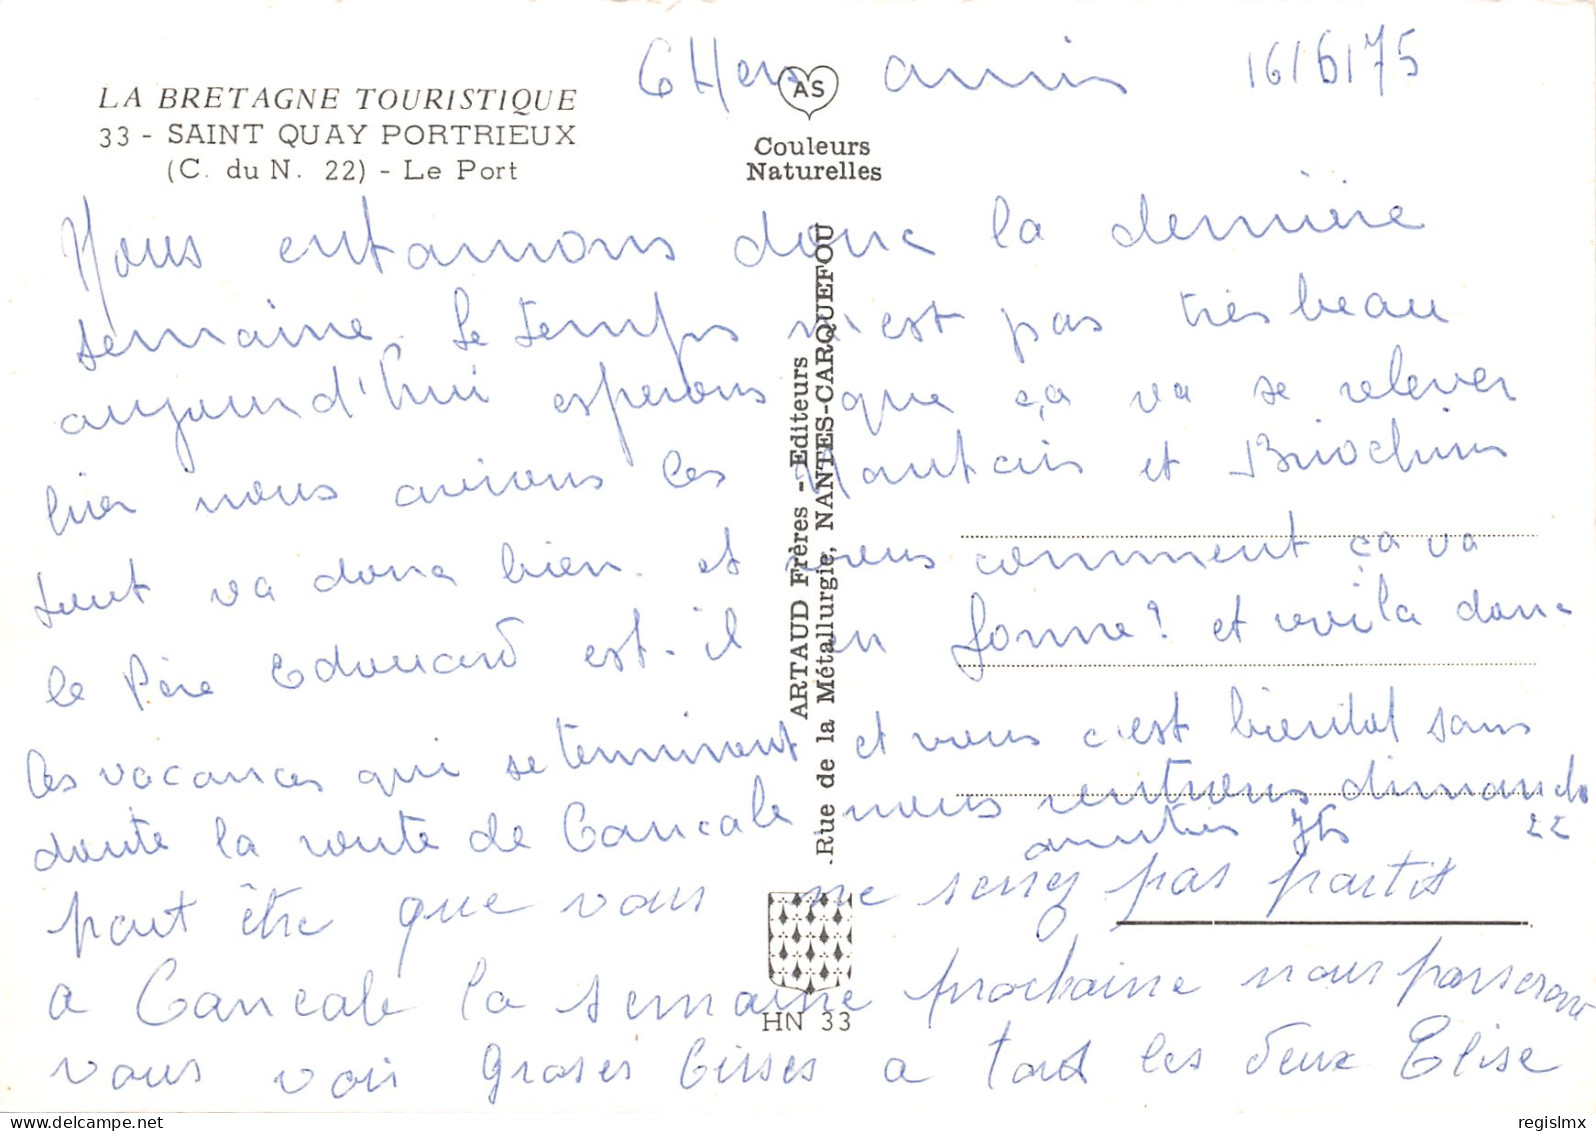 CHers amis 16/6/75
LA BRETAGNE TOURISTIQUE
33 - SAINT QUAY PORTRIEUX
(C. du N. 22) - Le Port
AS
Couleurs
Naturelles
Nous entamons donc la dernière
semaine. Le temps n'est pas très beau
aujourd'hui esperons que ça va se relever
hier nous avions les Nantais et Briochins
tout va donc bien. et vous comment ça va
le Père Edouard est-il en forme? et voila donc
les vacances qui se terminent et vous c'est bientot sans
doute la route de Cancale nous rentrons dimanche
22
peut être que vous ne serez pas partis
a Cancale la semaine prochaine nous passerons
vous voir groses bises a tous les deux Elise
ARTAUD Frères - Editeurs
Rue de la Métallurgie, NANTES-CARQUEFOU
HN 33
delcampe.net
regislmx